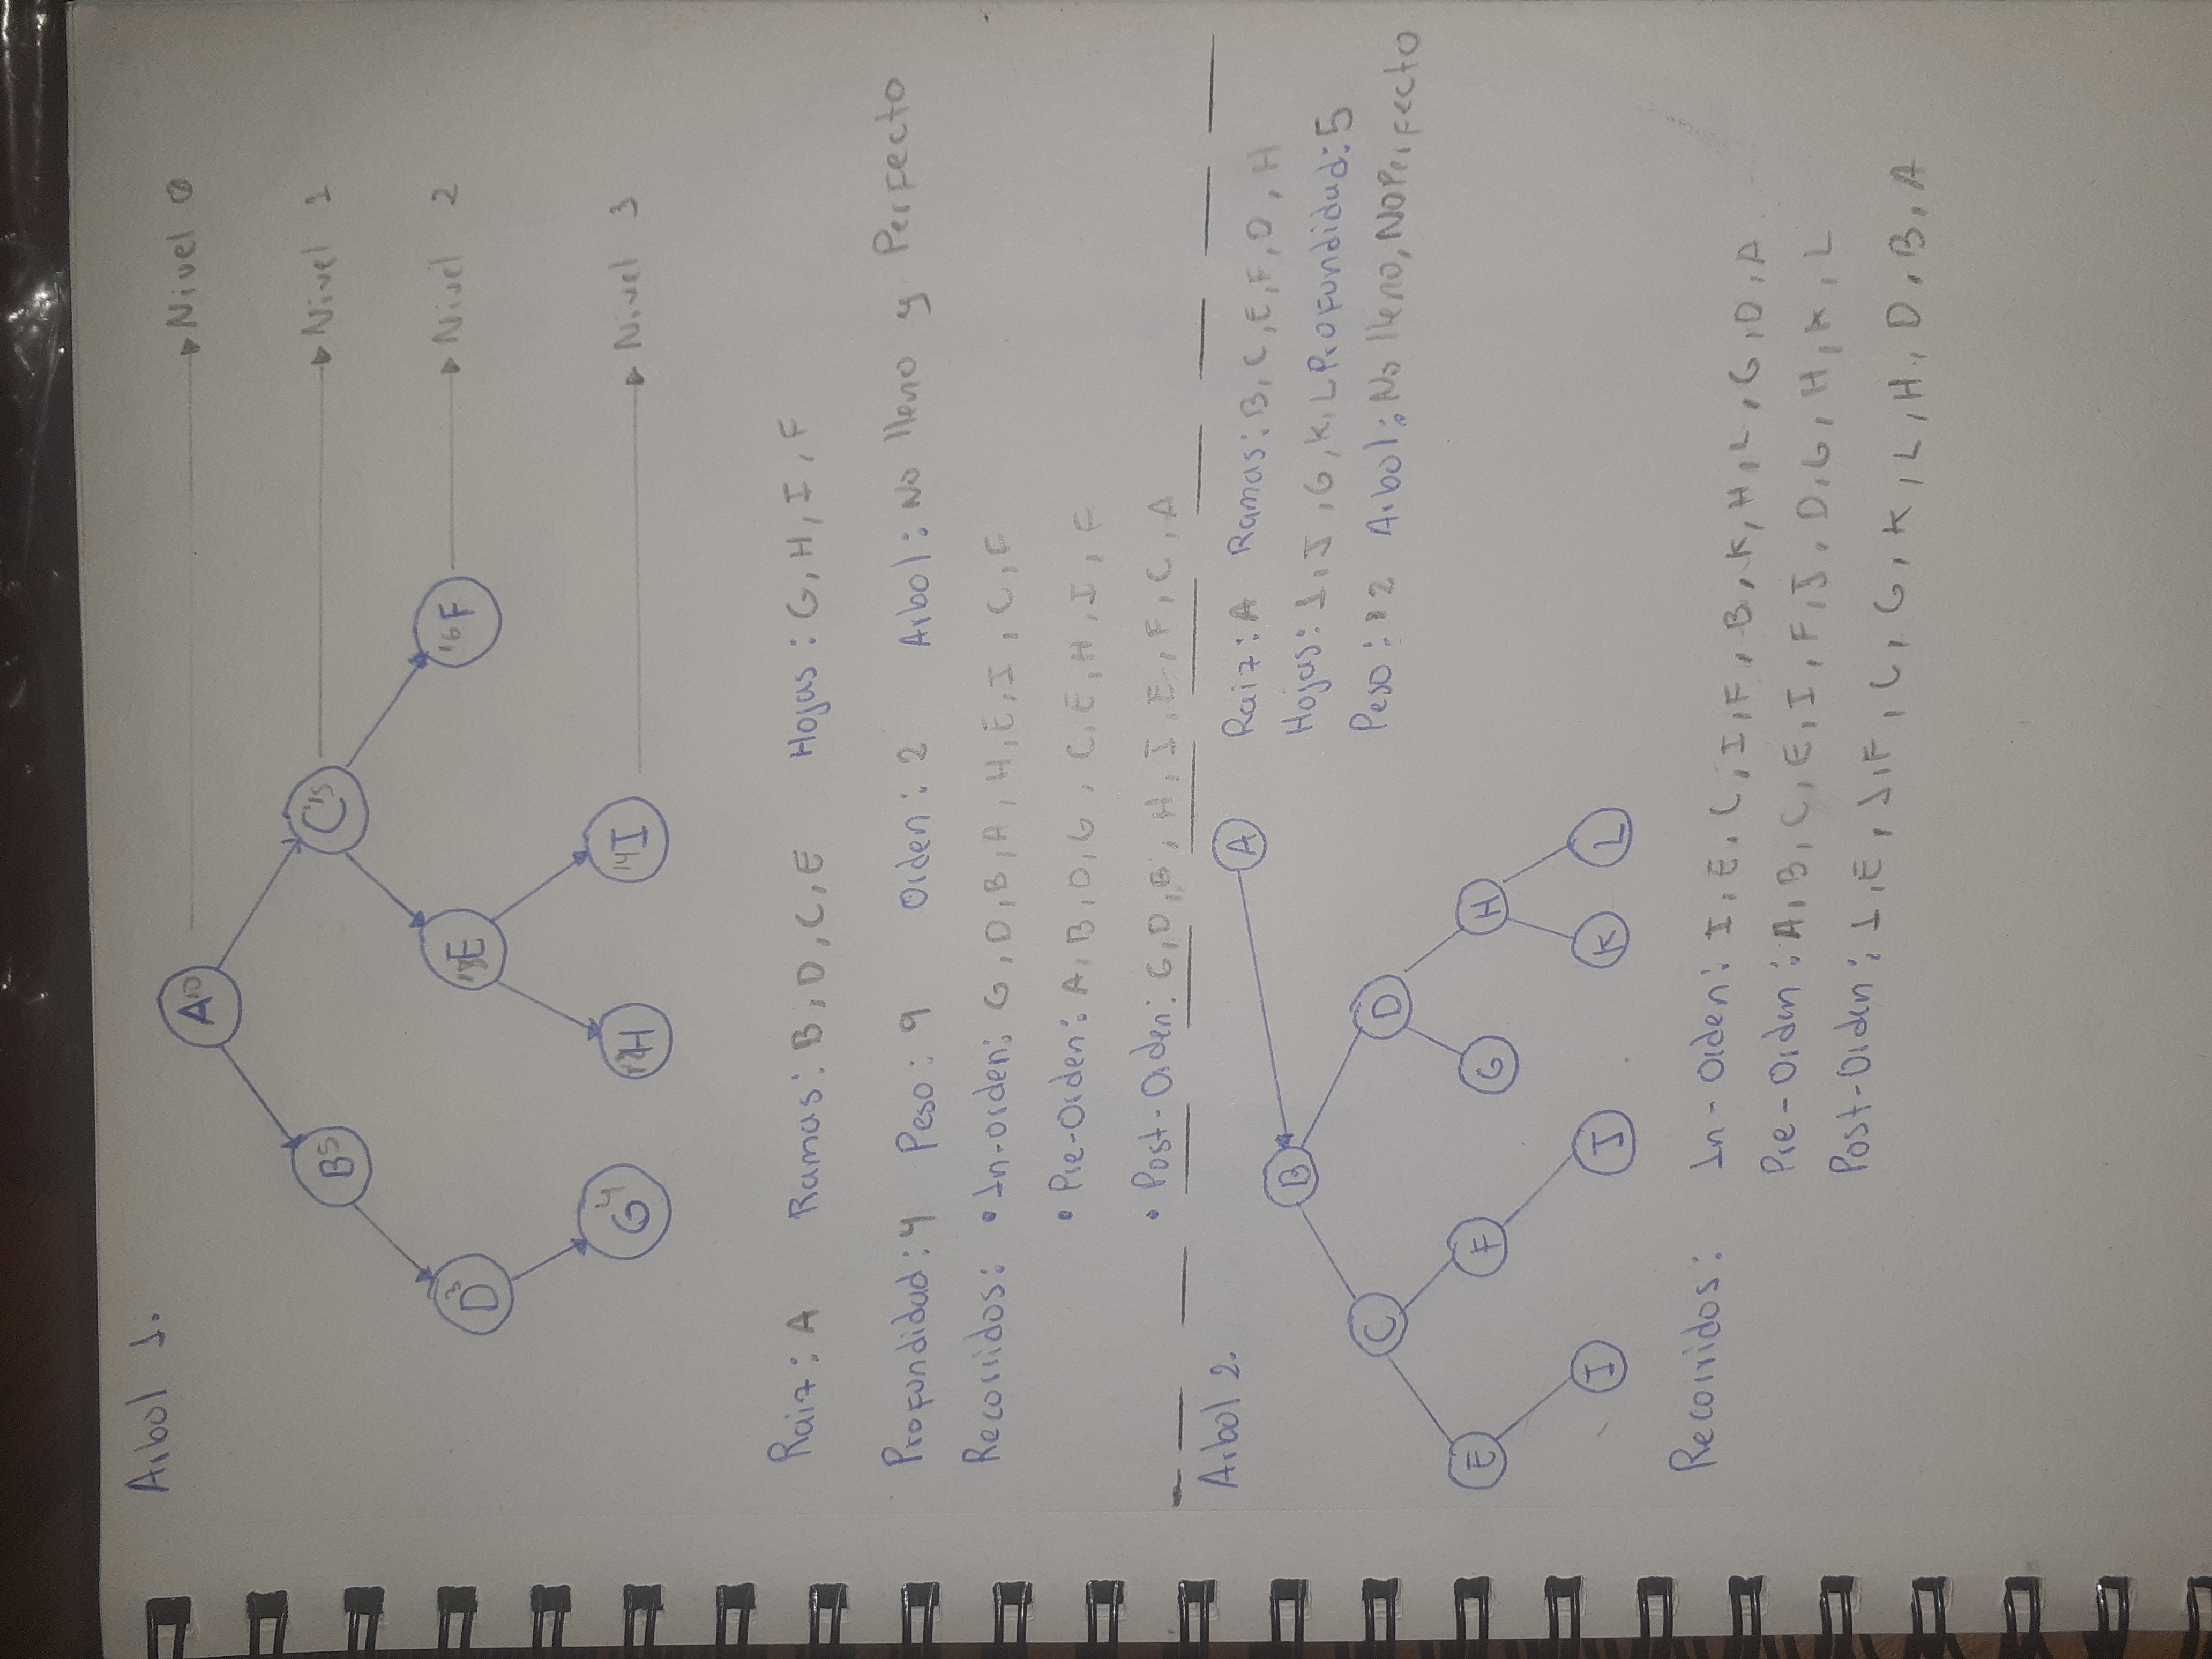 Arbol 1.
A 10 Nivel 0
B 5 C 15 Nivel 1
D 3 13 E 16 F Nivel 2
G 4 12 H 14 I Nivel 3
Raiz: A Ramas: B, D, C, E Hojas: G, H, I, F
Profundidad: 4 Peso: 9 Orden: 2 Arbol: No lleno y Perfecto
Recorridos: • In-orden: G, D, B, A, H, E, I, C, F
• Pre-Orden: A, B, D, G, C, E, H, I, F
• Post-Orden: G, D, B, H, I, E, F, C, A
Arbol 2.
A
B
C D
E F G H
I J K L
Raiz: A Ramas: B, C, E, F, D, H
Hojas: I, J, G, K, L Profundidad: 5
Peso: 12 Arbol: No lleno, No Perfecto
Recorridos: In-Orden: I, E, C, I, F, B, K, H, L, G, D, A
Pre-Orden: A, B, C, E, I, F, J, D, G, H, K, L
Post-Orden: I, E, J, F, C, G, K, L, H, D, B, A